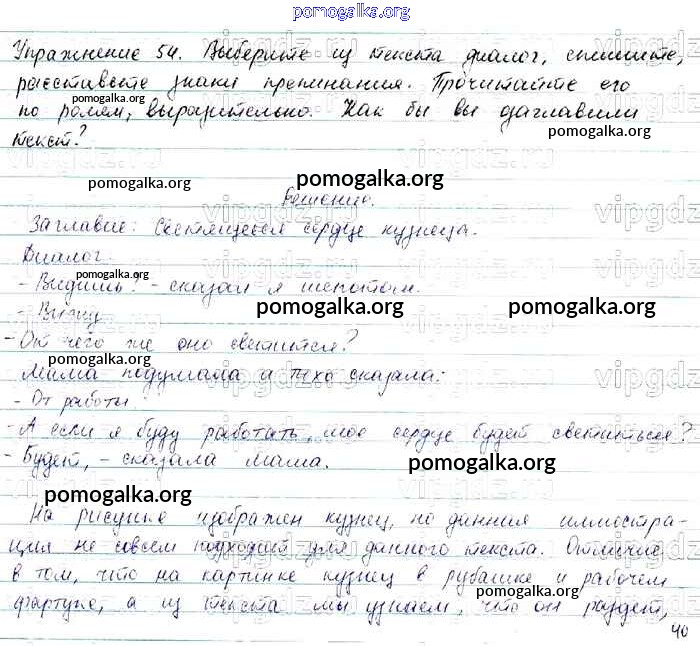 pomogalka.org
Упражнение 54. Выберите из текста диалог, спишите,
расставьте знаки препинания. Прочитайте его
pomogalka.org
по ролям, выразительно. Как бы вы озаглавили
pomogalka.org
текст?
pomogalka.org
pomogalka.org
Решение.
vipgdz.ru
Заглавие: Светящееся сердце кузнеца.
Диалог.
pomogalka.org
- Видишь? - сказал я шепотом.
pomogalka.org
pomogalka.org
pomogalka.org
- Вижу.
- От чего же оно светится?
pomogalka.org
Мама подумала и тихо сказала:
- От работы.
- А если я буду работать, мое сердце будет светиться?
- Будет, - сказала мама.
pomogalka.org
pomogalka.org
На рисунке изображен кузнец, но данная иллюстра-
ция не совсем подходит для данного текста. Отличие
в том, что на картинке кузнец в рубашке и рабочем
pomogalka.org
фартуке, а из текста мы узнаем, что он раздет,
pomogalka.org
40